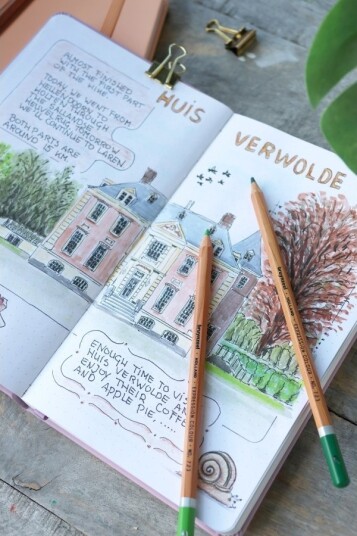 ALMOST FINISHED
WITH THE FIRST PART
OF THE HIKE
TODAY WE WENT FROM
THROUGH
TOMORROW
WE'LL CONTINUE TO LAREN
BOTH PARTS ARE
AROUND 15 KM
HUIS
VERWOLDE
ENOUGH TIME TO VI
HUIS VERWOLDE AN
ENJOY THEIR COFFE
AND APPLE PIE,.....
bruynzeel